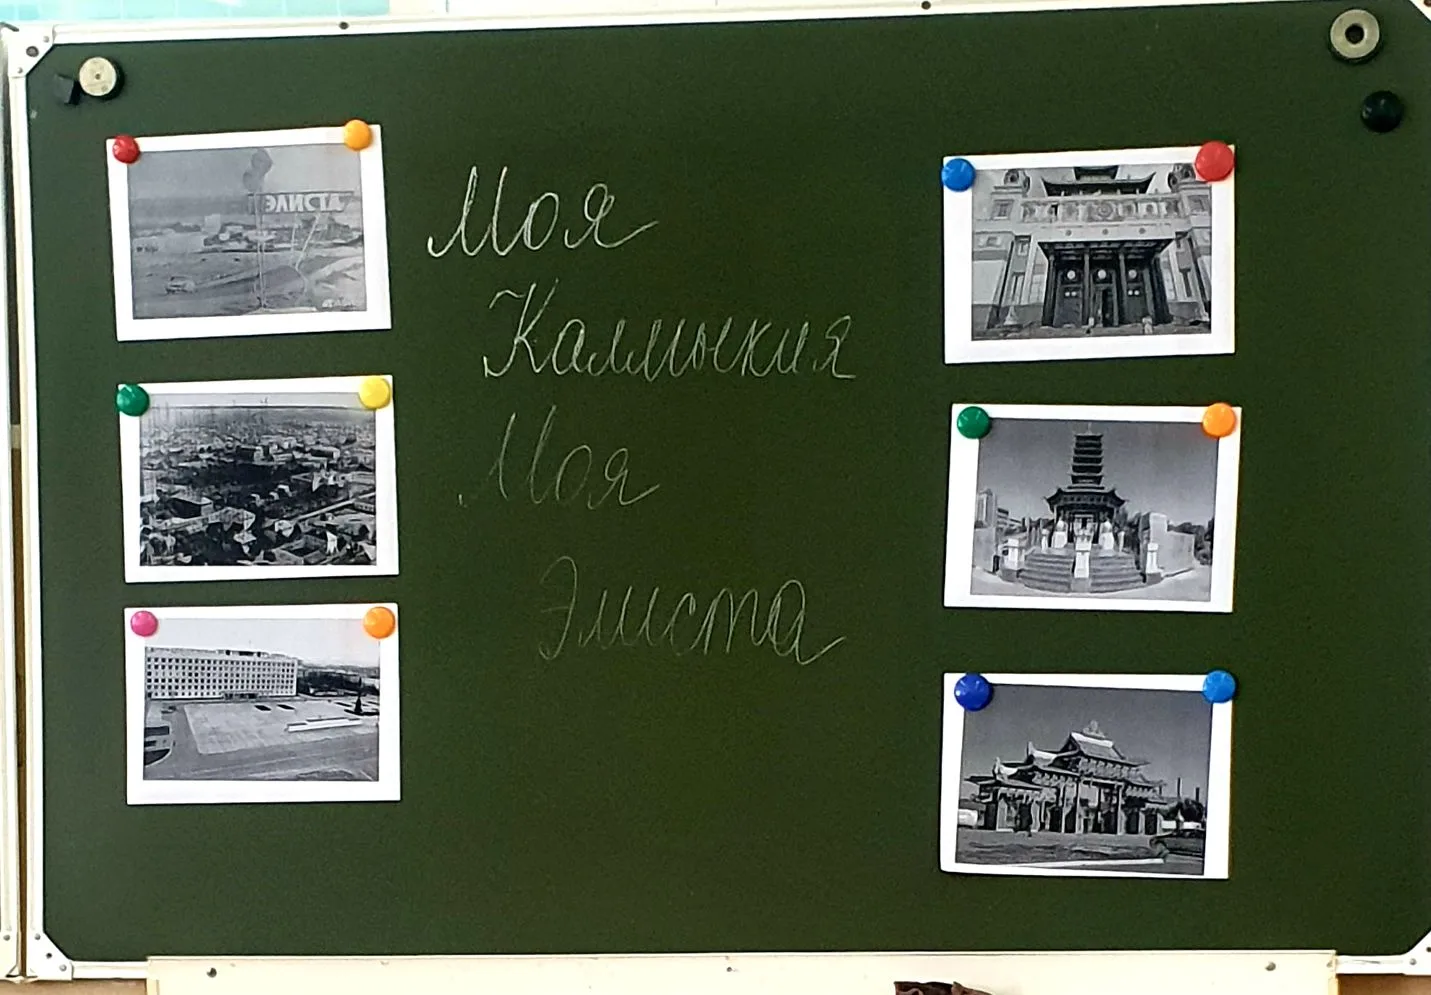 Моя
Калмыкия
Моя
Элиста
ЭЛИСТА